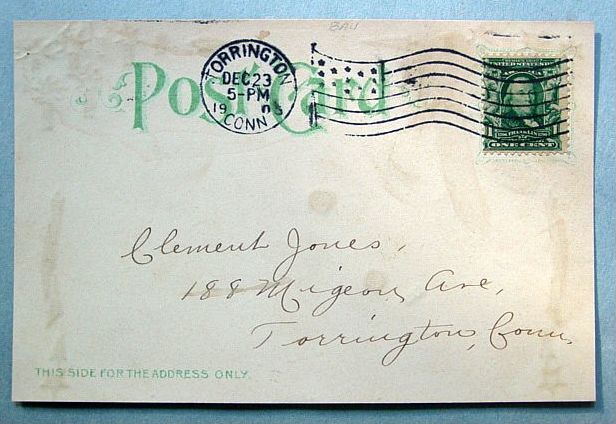 BAU
TORRINGTON
DEC 23
5-PM
19 05
CONN
Post Card
UNITED STATES
ONE CENT
Clement Jones,
188 Migeon Ave,
Torrington, Conn.
THIS SIDE FOR THE ADDRESS ONLY.